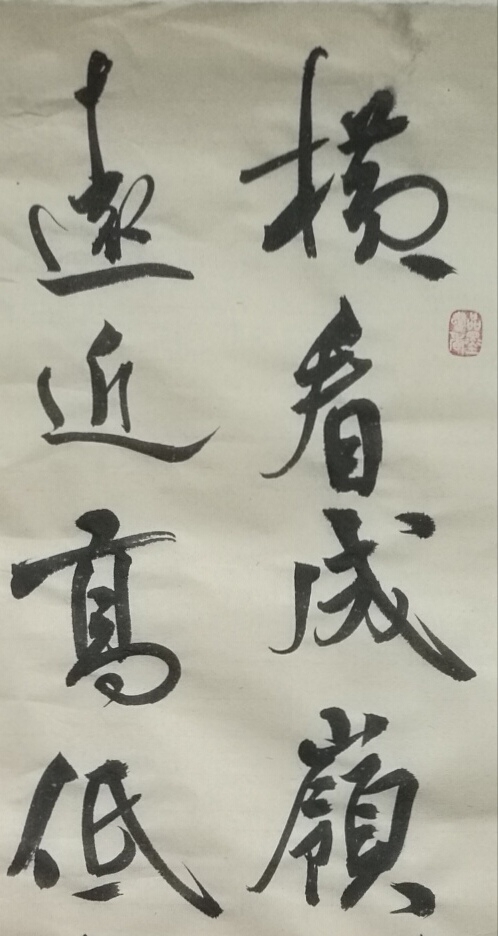 橫看成嶺
遠近高低